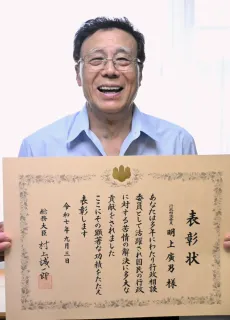 表彰状
明上廣乃 様
あなたは多年にわたり行政相談
委員として活躍され国民の行政
に対する苦情の解決に多大な
貢献をされました
ここにその顕著な功績をたたえ
表彰します
令和七年九月三日
総務大臣 村上誠一郎